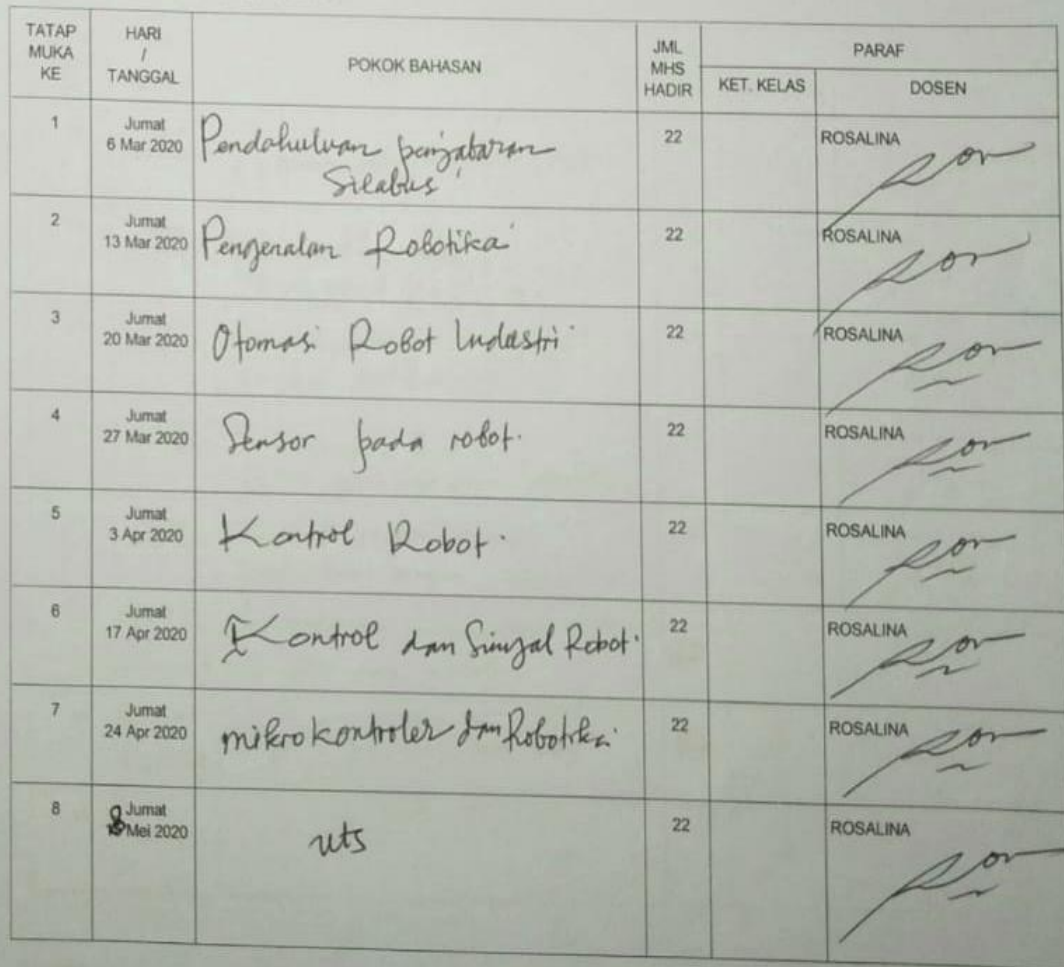 TATAP MUKA KE
HARI / TANGGAL
POKOK BAHASAN
JML MHS HADIR
PARAF
KET. KELAS
DOSEN
1
Jumat
6 Mar 2020
Pendahuluan penjabaran
Silabus
22
ROSALINA
2
Jumat
13 Mar 2020
Pengenalan Robotika
22
ROSALINA
3
Jumat
20 Mar 2020
Otomasi Robot Industri
22
ROSALINA
4
Jumat
27 Mar 2020
Sensor pada robot.
22
ROSALINA
5
Jumat
3 Apr 2020
Kontrol Robot.
22
ROSALINA
6
Jumat
17 Apr 2020
Kontrol dan Sinyal Robot.
22
ROSALINA
7
Jumat
24 Apr 2020
mikrokontroler dan Robotika
22
ROSALINA
8
Jumat
8 Mei 2020
uts
22
ROSALINA